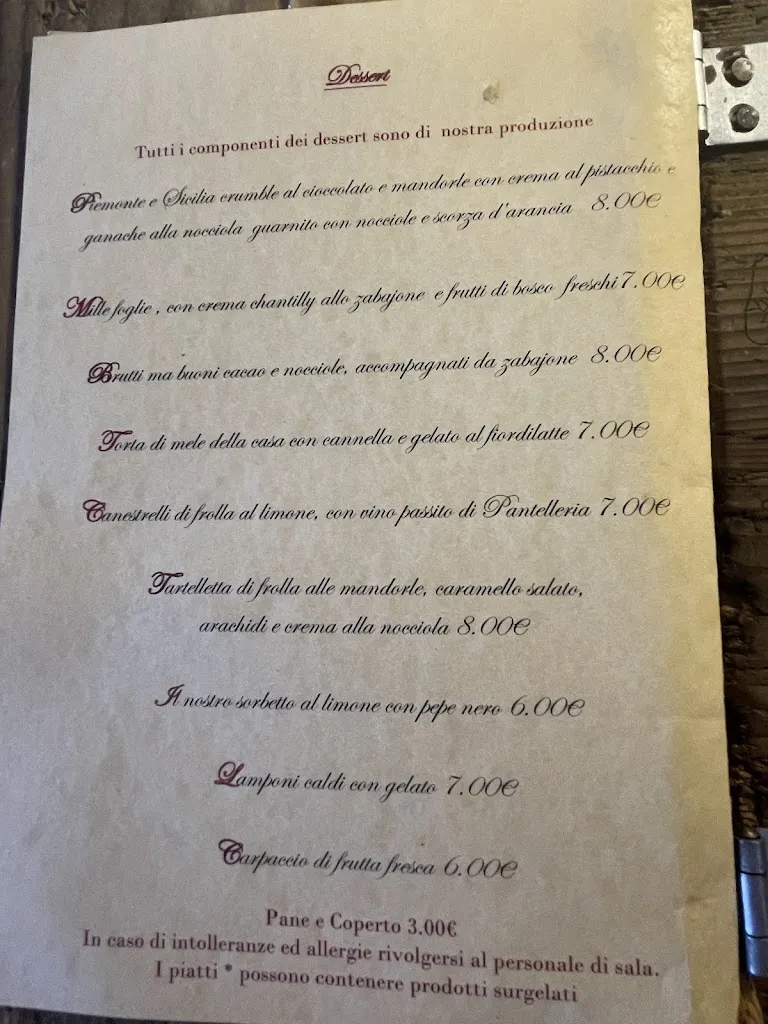 Dessert
Tutti i componenti dei dessert sono di nostra produzione
Piemonte e Sicilia crumble al cioccolato e mandorle con crema al pistacchio e
ganache alla nocciola guarnito con nocciole e scorza d'arancia 8.00€
Mille foglie , con crema chantilly allo zabajone e frutti di bosco freschi 7.00€
Brutti ma buoni cacao e nocciole, accompagnati da zabajone 8.00€
Torta di mele della casa con cannella e gelato al fiordilatte 7.00€
Canestrelli di frolla al limone, con vino passito di Pantelleria 7.00€
Tartelletta di frolla alle mandorle, caramello salato,
arachidi e crema alla nocciola 8.00€
Il nostro sorbetto al limone con pepe nero 6.00€
Lamponi caldi con gelato 7.00€
Carpaccio di frutta fresca 6.00€
Pane e Coperto 3.00€
In caso di intolleranze ed allergie rivolgersi al personale di sala.
I piatti * possono contenere prodotti surgelati